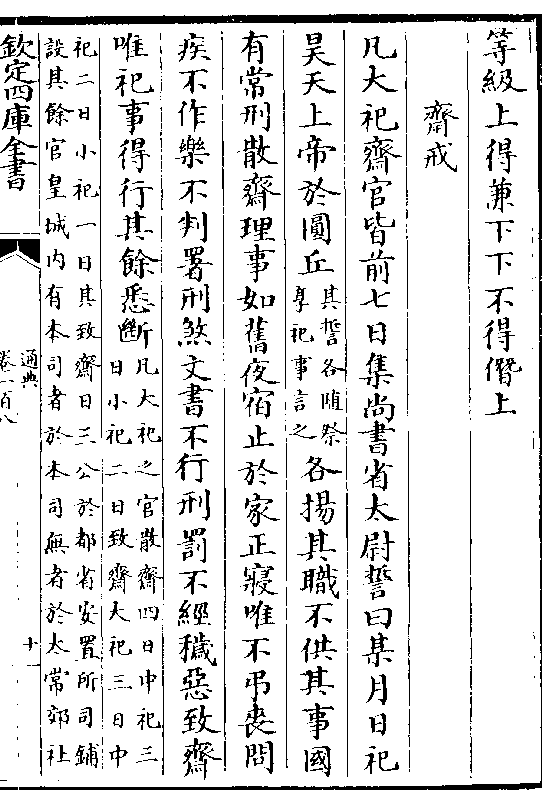 等級上得兼下下不得僭上
齋戒
凡大祀齋官皆前七日集尚書省太尉誓曰某月日祀
昊天上帝於圓丘其誓各隨祭享祀事言之各揚其職不供其事國
有常刑散齋理事如舊夜宿止於家正寢唯不弔喪問
疾不作樂不判署刑煞文書不行刑罰不經穢惡致齋
唯祀事得行其餘悉斷凡大祀之官散齋四日中祀三日小祀二日致齋大祀三日中
祀二日小祀一日其致齋日三公於都省安置所司鋪
設其餘官皇城內有本司者於本司無者於太常郊社
欽定四庫全書
通典
卷一百八
十一